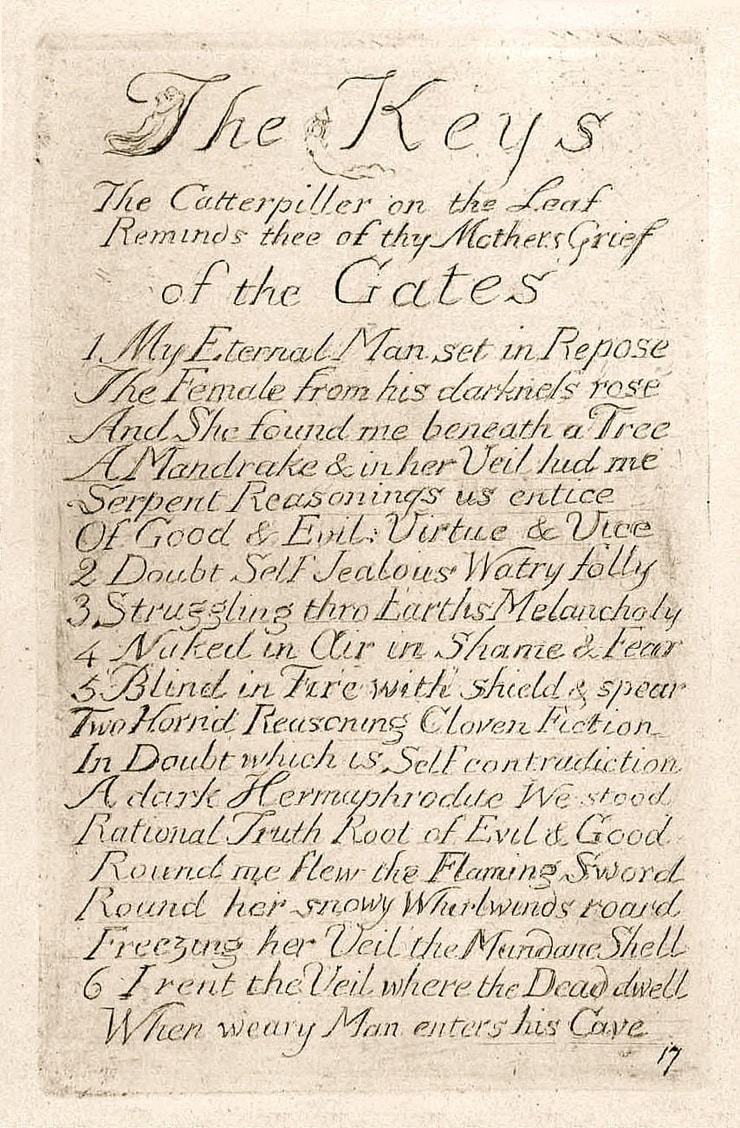 The Keys
The Catterpiller on the Leaf
Reminds thee of thy Mothers Grief
of the Gates
1 My Eternal Man set in Repose
The Female from his darkneſs rose
And She found me beneath a Tree
A Mandrake & in her Veil hid me
Serpent Reasonings us entice
Of Good & Evil: Virtue & Vice
2 Doubt Self Jealous Watry folly
3 Struggling thro Earths Melancholy
4 Naked in Air in Shame & Fear
5 Blind in Fire with shield & spear
Two Hornd Reasoning Cloven Fiction
In Doubt which is Self contradiction
A dark Hermaphrodite We stood
Rational Truth Root of Evil & Good
Round me flew the Flaming Sword
Round her snowy Whirlwinds roard
Freezing her Veil the Mundane Shell
6 I rent the Veil where the Dead dwell
When weary Man enters his Cave
17